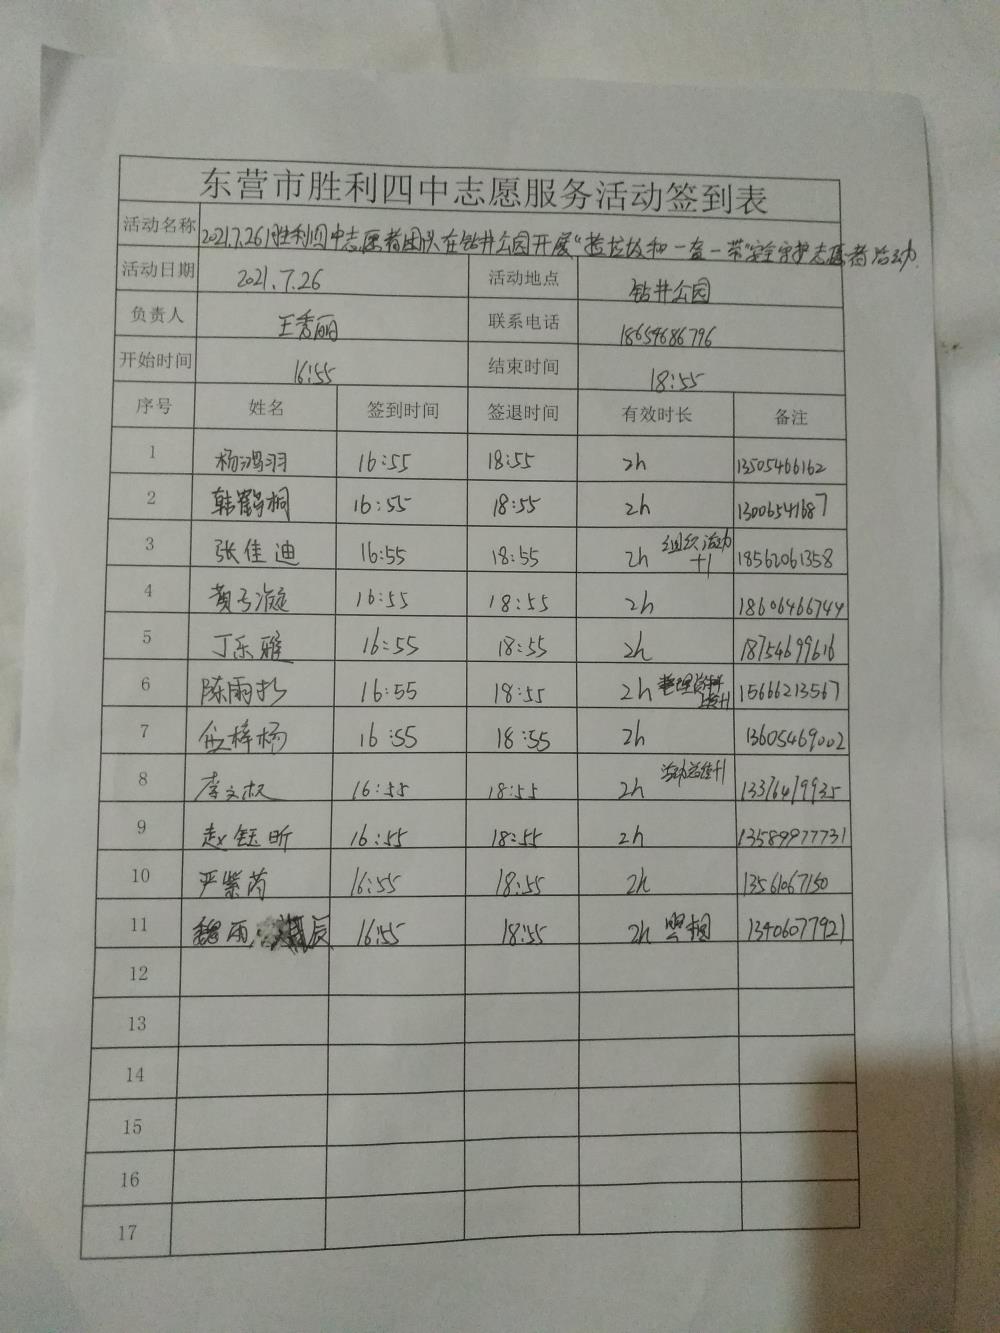 东营市胜利四中志愿服务活动签到表
活动名称 2021.7.26胜利四中志愿者团队在钻井公园开展“捡垃圾和一盔一带”安全守护志愿者活动.
活动日期 2021.7.26 活动地点 钻井公园
负责人 王秀丽 联系电话 18654686796
开始时间 16:55 结束时间 18:55
序号 姓名 签到时间 签退时间 有效时长 备注
1 杨鸿羽 16:55 18:55 2h 13505466162
2 韩鹤桐 16:55 18:55 2h 13006541687
3 张佳迪 16:55 18:55 2h 组织活动+1 18562061358
4 黄子漩 16:55 18:55 2h 18606466744
5 丁乐雅 16:55 18:55 2h 18754699616
6 陈雨 16:55 18:55 2h 整理资料 +1 15666213567
7 梓杨 16:55 18:55 2h 13605469002
8 李文 16:55 18:55 2h 活动总结+1 13376419935
9 赵钰昕 16:55 18:55 2h 13589977731
10 严紫芮 16:55 18:55 2h 13561067150
11 魏雨辰 16:55 18:55 2h 照相 13406077921
12
13
14
15
16
17